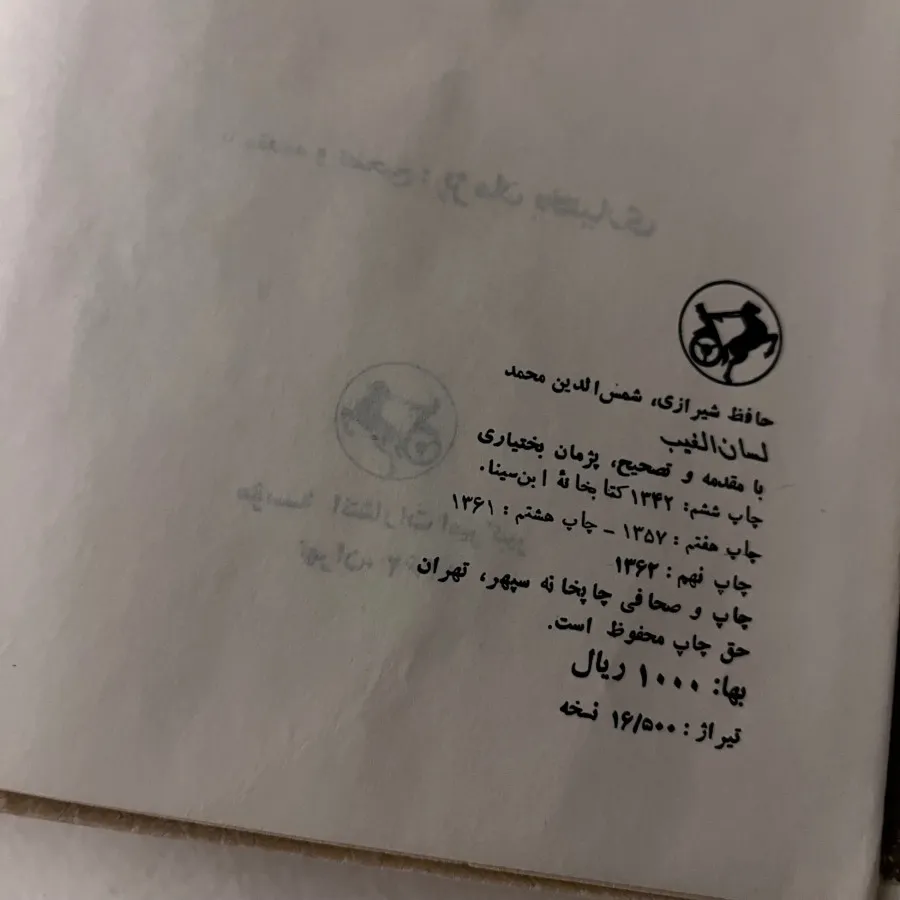 حافظ شیرازی، شمس‌الدین محمد
لسان‌الغیب
با مقدمه و تصحیح، پژمان بختیاری
چاپ ششم: ۱۳۴۲ کتابخانهٔ ابن‌سینا.
چاپ هفتم: ۱۳۵۷ – چاپ هشتم: ۱۳۶۱
چاپ نهم: ۱۳۶۲
چاپ و صحافی چاپخانه سپهر، تهران
حق چاپ محفوظ است.
بها: ۱۰۰۰ ریال
تیراژ: ۱۶/۵۰۰ نسخه